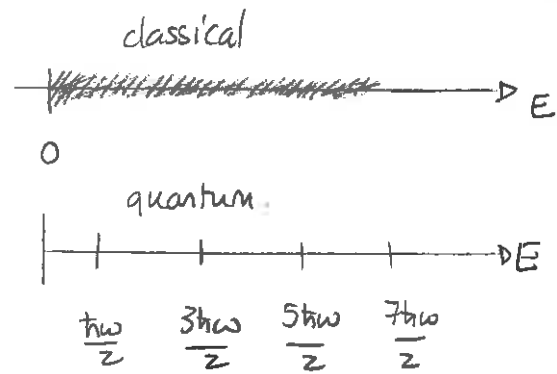 classical
E
0
quantum
E
ħω/2 3ħω/2 5ħω/2 7ħω/2